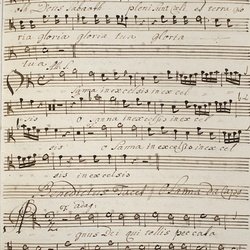 Deus Sabaoth pleni sunt cæli et terra glo
ria gloria gloria tua gloria
tua
sanna in excelsis in excel
sis o sanna in excelsis in excel
sis o sanna in excelsis in excel
sis in excelsis
Benedictus Tacet
Adag:
gnus Dei qui tollis peccata